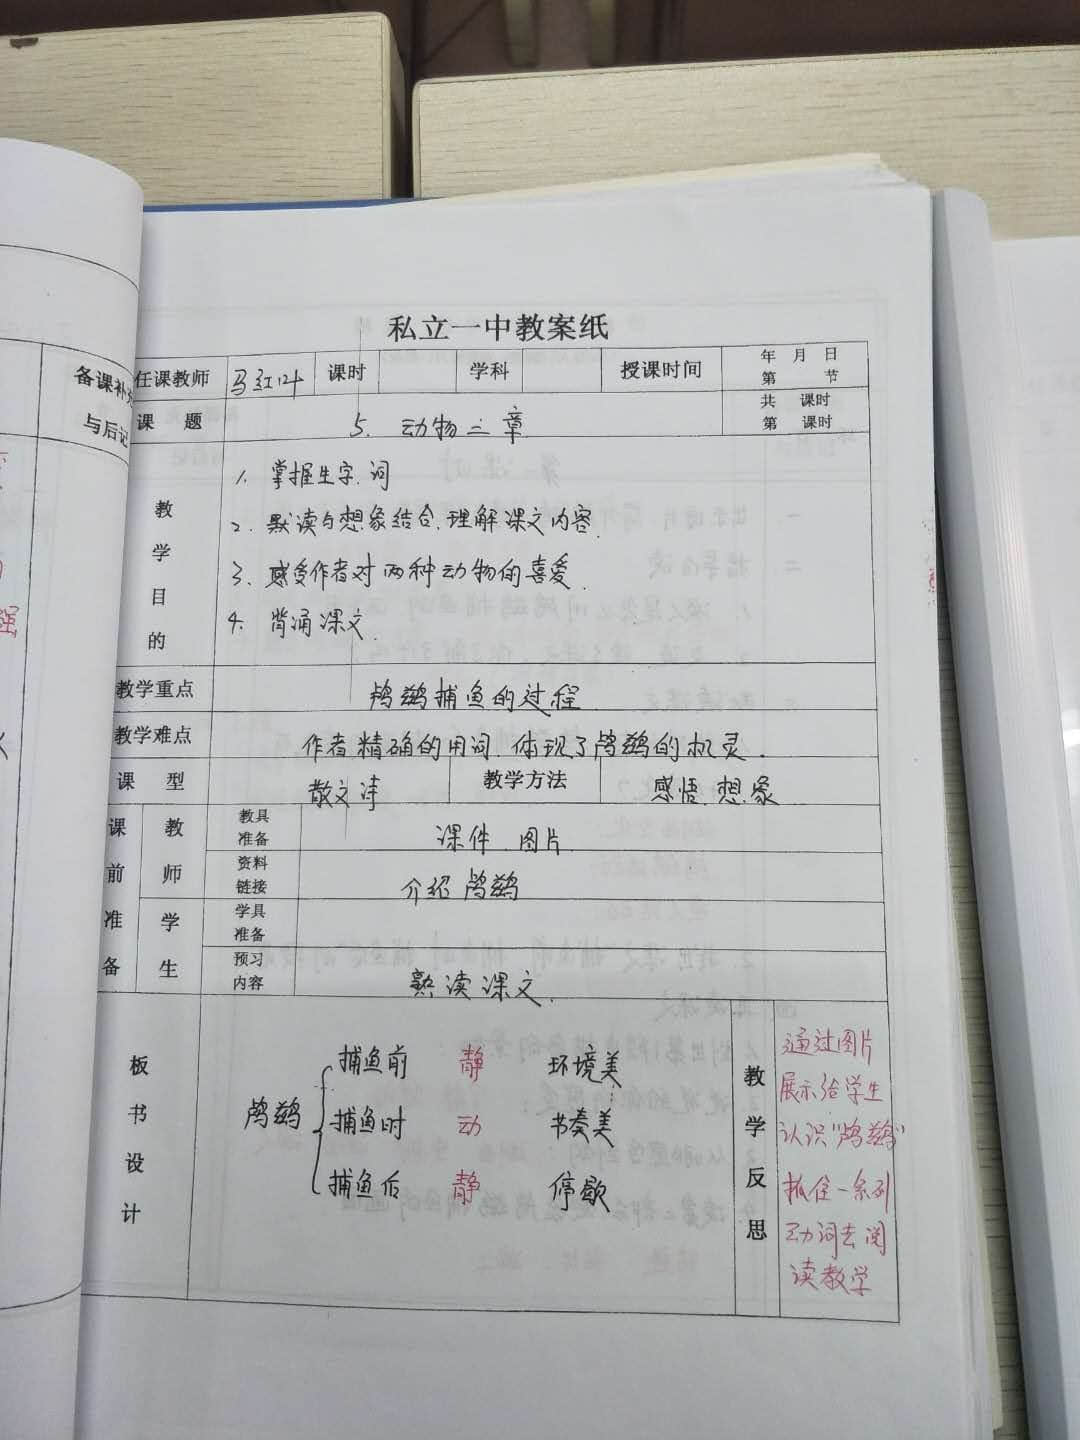 私立一中教案纸
备课补充
与后记
任课教师 课时 学科 授课时间 年 月 日
第 节
课 题 5. 动物二章 共 课时
第 课时
教学目的
1. 掌握生字.词
2. 默读与想象结合.理解课文内容.
3. 感受作者对两种动物的喜爱.
4. 背诵课文.
教学重点 鸬鹚捕鱼的过程.
教学难点 作者精确的用词.体现了鸬鹚的机灵.
课 型 散文诗 教学方法 感悟.想象
课前准备
教师
教具准备 课件.图片
资料链接 介绍鸬鹚
学生
学具准备
预习内容 熟读课文.
板书设计
鸬鹚
捕鱼前 静 环境美
捕鱼时 动 节奏美
捕鱼后 静 停歇
教学反思
通过图片
展示给学生
认识"鸬鹚"
抓住一系列
动词去阅
读教学
强